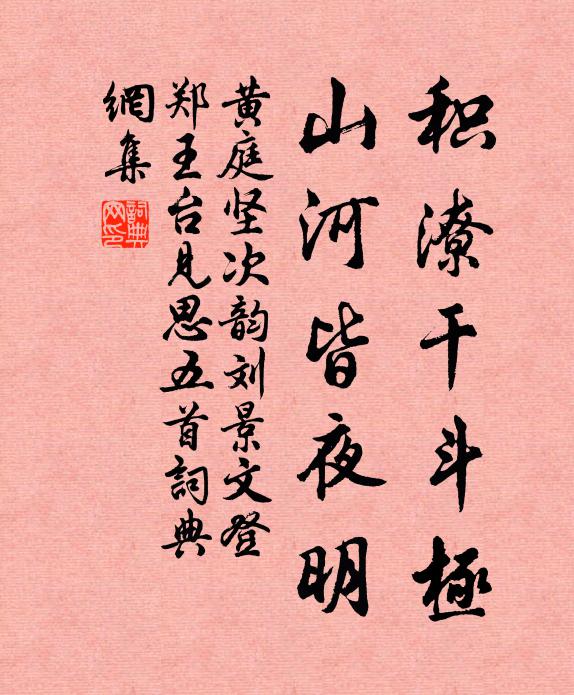 积潦干斗極
山河皆夜明
黄庭坚次韵刘景文登
郑王台見思五首詞典
網集
詞典網印